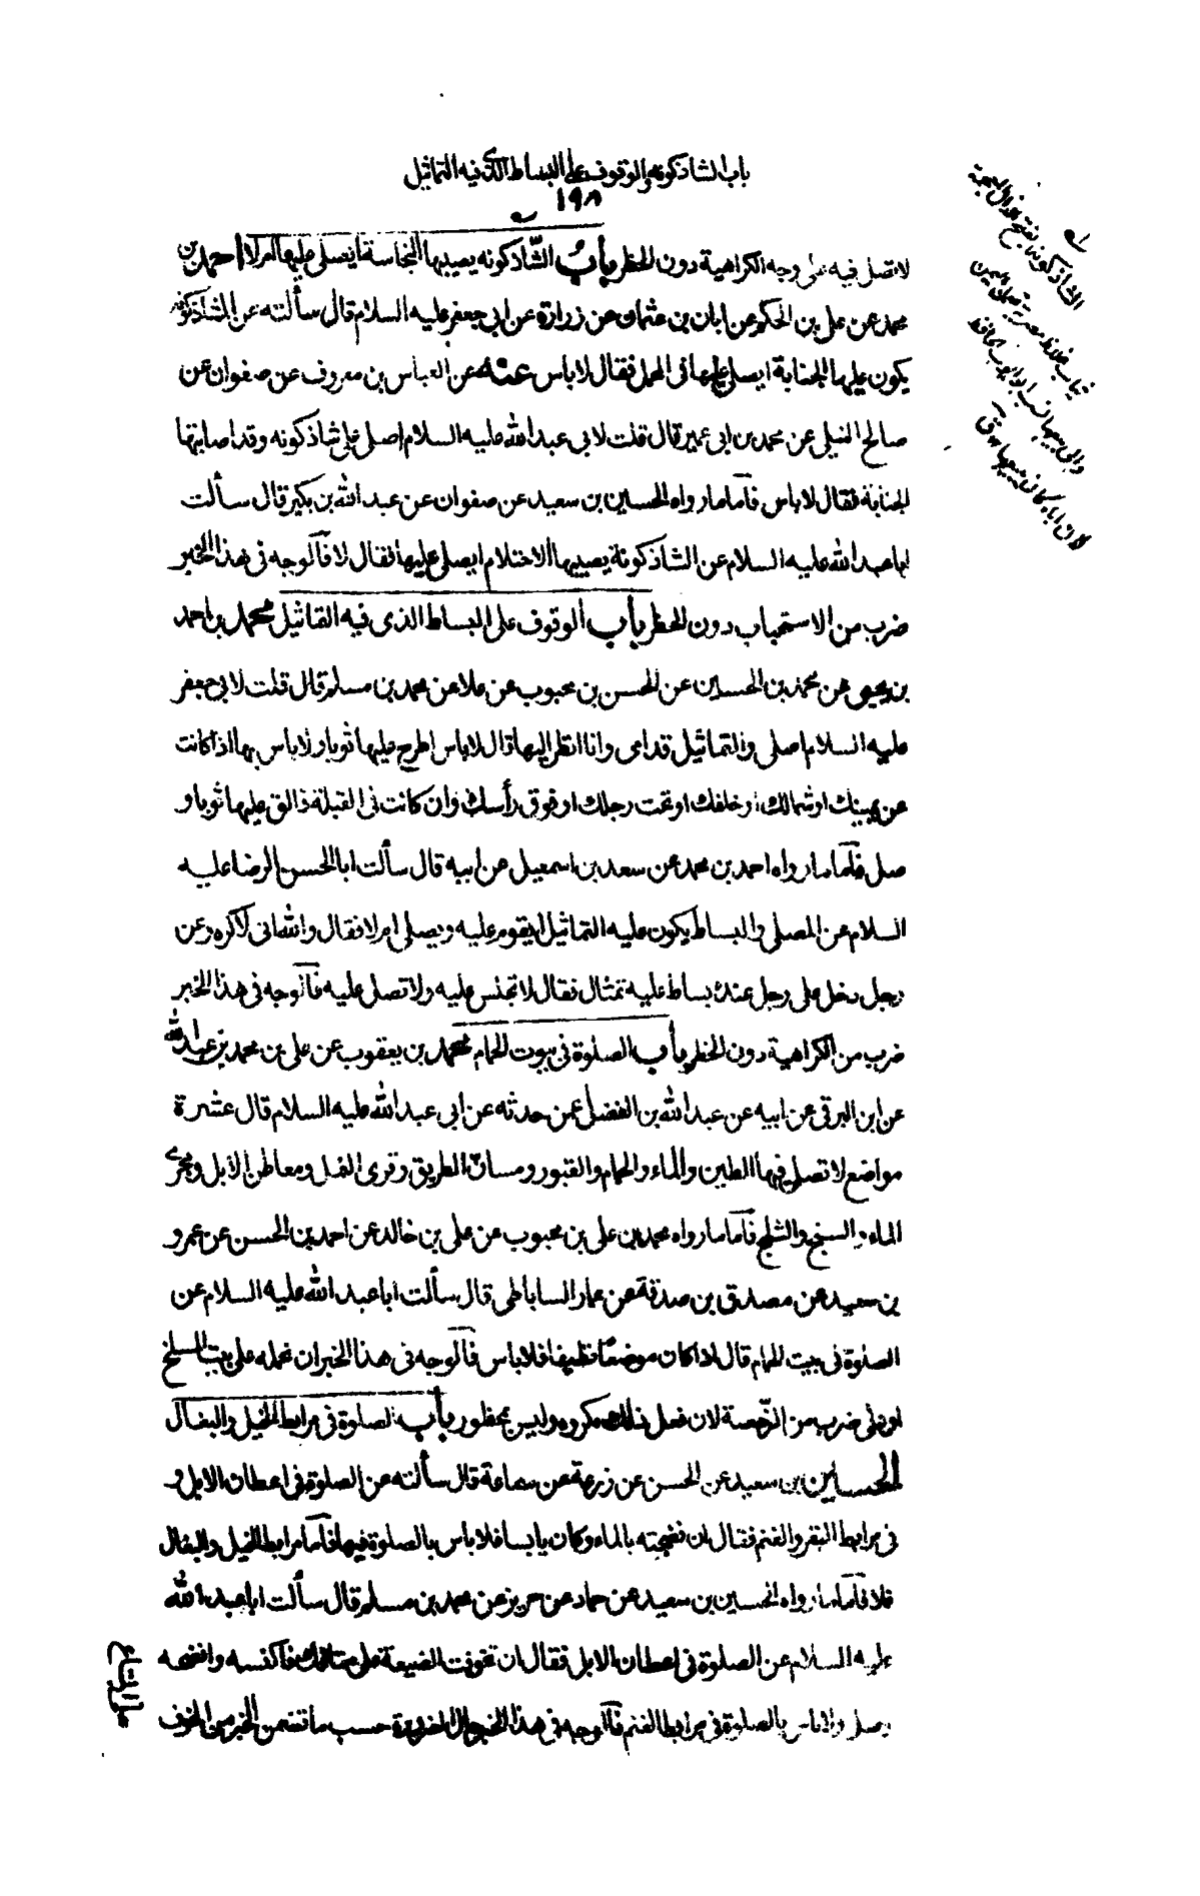 باب الشاذكونه والوقوف على البساط الذى فيه التماثيل
١٩٨
لا تصل فيه على وجه الكراهية دون الحظر باب الشاذكونه يصيبها النجاسة ايصلى عليها ام لا احمد بن
محمد عن على بن الحكم عن ابان بن عثمان عن زرارة عن ابى جعفر عليه السلام قال سألته عن الشاذكونه
يكون عليها الجنابة ايصلى عليها فى المحمل فقال لا باس عنه عن العباس بن معروف عن صفوان عن
صالح النيلى عن محمد بن ابى عمير قال قلت لابى عبد الله عليه السلام اصلى على شاذكونه وقد اصابتها
الجنابة فقال لا باس فاما ما رواه الحسين بن سعيد عن صفوان عن عبد الله بن بكير قال سألت
ابا عبد الله عليه السلام عن الشاذكونة يصيبها الاحتلام ايصلى عليها فقال لا فالوجه فى هذا الخبر
ضرب من الاستحباب دون الحظر باب الوقوف على البساط الذى فيه التماثيل محمد بن احمد
بن يحيى عن محمد بن الحسين عن الحسن بن محبوب عن علا عن محمد بن مسلم قال قلت لابى جعفر
عليه السلام اصلى والتماثيل قدامى وانا انظر اليها قال لا باس اطرح عليها ثوبا ولا باس بها اذا كانت
عن يمينك او شمالك او خلفك او تحت رجلك او فوق رأسك وان كانت فى القبلة فالق عليها ثوبا و
صل فاما ما رواه احمد بن محمد عن سعد بن اسمعيل عن ابيه قال سألت ابا الحسن الرضا عليه
السلام عن المصلى والبساط يكون عليه التماثيل ايقوم عليه ويصلى ام لا فقال والله انى لاكره وعن
رجل دخل على رجل عنده بساط عليه تمثال فقال لا تجلس عليه ولا تصل عليه فالوجه فى هذا الخبر
ضرب من الكراهية دون الحظر باب الصلوة فى بيوت الحمام محمد بن يعقوب عن على بن محمد بن عبد الله
عن ابن البرقى عن ابيه عن عبد الله بن الفضل عمن حدثه عن ابى عبد الله عليه السلام قال عشرة
مواضع لا تصلى فيها الطين والماء والحمام والقبور ومسان الطريق وقرى النمل ومعاطن الابل ومجرى
الماء والسبخ والثلج فاما ما رواه محمد بن على بن محبوب عن على بن خالد عن احمد بن الحسن عن عمرو
بن سعيد عن مصدق بن صدقة عن عمار الساباطى قال سألت ابا عبد الله عليه السلام عن
الصلوة فى بيت الحمام قال اذا كان موضعا نظيفا فلا باس فالوجه فى هذا الخبر ان نحمله على بيت المسلخ
او على ضرب من الرخصة لان فعل ذلك مكروه وليس بمحظور باب الصلوة فى مرابط الخيل والبغال
الحسين بن سعيد عن الحسن عن زرعة عن سماعة قال سألته عن الصلوة فى اعطان الابل و
فى مرابط البقر والغنم فقال ان نضحته بالماء وكان يابسا فلا باس بالصلوة فيها فاما مرابط الخيل والبغال
فلا فاما ما رواه الحسين بن سعيد عن حماد عن حريز عن محمد بن مسلم قال سألت ابا عبد الله
عليه السلام عن الصلوة فى اعطان الابل فقال ان تخوفت الضيعة على متاعك فاكنسه وانضحه
وصل ولا باس بالصلوة فى مرابط الغنم فالوجه فى هذا الخبر حال الضرورة حسب ما تضمن الخبر من الخوف
الشاذكونه بفتح الذال المعجمة
ثياب غلاظ مضربة تعمل باليمن
والى بيعها نسب ابو ايوب الحافظ
لان اباه كان يبيعها ق